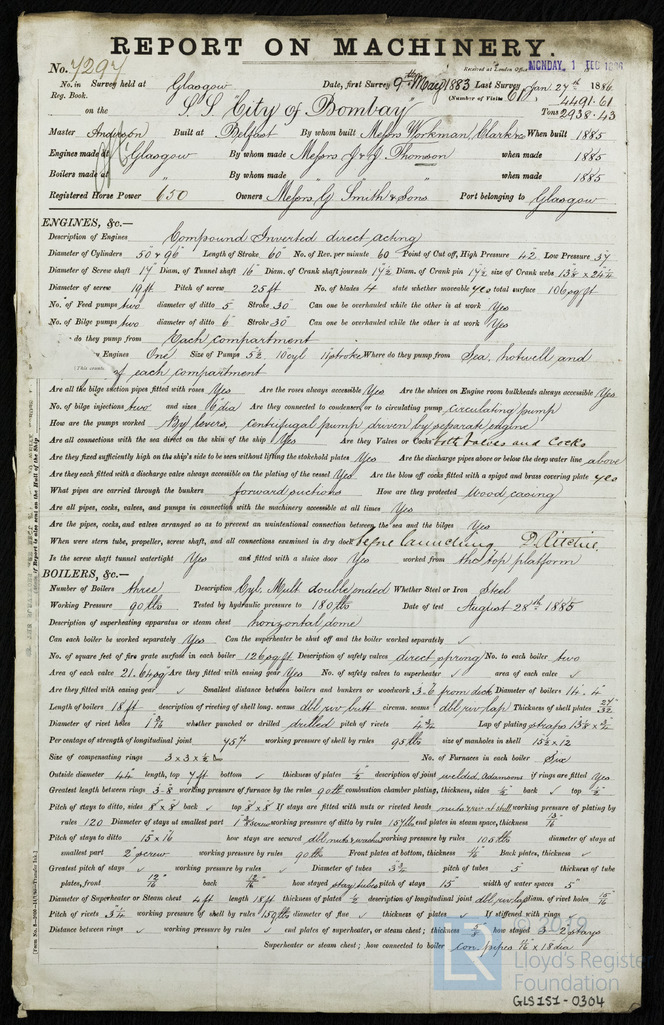 REPORT ON MACHINERY.
No. 7297
Received at London Office MONDAY, 1 FEB 1886
No. in Survey held at Glasgow Date, first Survey 9th May 1883 Last Survey Jan 27th 1886
Reg. Book. (Number of Visits 60)
on the S.S. "City of Bombay" Tons 4491.61 2938.43
Master Anderson Built at Belfast By whom built Messrs Workman, Clark & Co When built 1885
Engines made at Glasgow By whom made Messrs J & J Thomson when made 1885
Boilers made at " By whom made " when made 1885
Registered Horse Power 650 Owners Messrs G Smith & Sons Port belonging to Glasgow
ENGINES, &c.—
Description of Engines Compound Inverted direct acting
Diameter of Cylinders 50 & 96" Length of Stroke 60" No. of Rev. per minute 60 Point of Cut off, High Pressure 42 Low Pressure 37
Diameter of Screw shaft 17 Diam. of Tunnel shaft 16 Diam. of Crank shaft journals 17½ Diam. of Crank pin 17½ size of Crank webs
Diameter of screw 19 ft Pitch of screw 25 ft No. of blades 4 state whether moveable yes total surface 106 sq ft
No. of Feed pumps two diameter of ditto 5" Stroke 30" Can one be overhauled while the other is at work Yes
No. of Bilge pumps two diameter of ditto 6" Stroke 30" Can one be overhauled while the other is at work Yes
do they pump from Each compartment
Engines One Size of Pumps 5½ 10 cyl 11 stroke Where do they pump from Sea, hotwell and
of each compartment
Are all the bilge suction pipes fitted with roses Yes Are the roses always accessible Yes Are the sluices on Engine room bulkheads always accessible Yes
No. of bilge injections two and sizes 6 dia Are they connected to condenser, or to circulating pump circulating pump
How are the pumps worked By levers, centrifugal pump driven by separate engine
Are all connections with the sea direct on the skin of the ship Yes Are they Valves or Cocks both valves and cocks
Are they fixed sufficiently high on the ship's side to be seen without lifting the stokehold plates Yes Are the discharge pipes above or below the deep water line above
Are they each fitted with a discharge valve always accessible on the plating of the vessel Yes Are the blow off cocks fitted with a spigot and brass covering plate yes
What pipes are carried through the bunkers forward suctions How are they protected Wood casing
Are all pipes, cocks, valves, and pumps in connection with the machinery accessible at all times Yes
Are the pipes, cocks, and valves arranged so as to prevent an unintentional connection between the sea and the bilges Yes
When were stern tube, propeller, screw shaft, and all connections examined in dry dock before launching D. Ritchie,
Is the screw shaft tunnel watertight Yes and fitted with a sluice door Yes worked from the top platform
BOILERS, &c.—
Number of Boilers three Description Cyl. Mult double ended Whether Steel or Iron Steel
Working Pressure 90 lbs Tested by hydraulic pressure to 180 lbs Date of test August 28th 1885
Description of superheating apparatus or steam chest horizontal dome
Can each boiler be worked separately Yes Can the superheater be shut off and the boiler worked separately ✓
No. of square feet of fire grate surface in each boiler 126 sq ft Description of safety valves direct spring No. to each boiler two
Area of each valve 21.64 sq" Are they fitted with easing gear Yes No. of safety valves to superheater ✓ area of each valve ✓
Are they fitted with easing gear ✓ Smallest distance between boilers and bunkers or woodwork 3-6 from deck Diameter of boilers 14.4"
Length of boilers 18 ft description of riveting of shell long. seams dbl riv butt circum. seams dbl riv lap Thickness of shell plates 27/32
Diameter of rivet holes whether punched or drilled drilled pitch of rivets 4¾ Lap of plating straps
Percentage of strength of longitudinal joint 75% working pressure of shell by rules 95 lbs size of manholes in shell 15½ x 12
Size of compensating rings 3 x 3 x ½ No. of Furnaces in each boiler Six
Outside diameter 44" length, top 7 ft bottom ✓ thickness of plates ½" description of joint welded Adamsons if rings are fitted Yes
Greatest length between rings 3-8 working pressure of furnace by the rules 90 lbs combustion chamber plating, thickness, sides ½" back ✓ top ½"
Pitch of stays to ditto, sides 8" x 8" back ✓ top 8" x 8" If stays are fitted with nuts or riveted heads working pressure of plating by
rules 120 Diameter of stays at smallest part working pressure of ditto by rules end plates in steam space, thickness 13/16
Pitch of stays to ditto 15 x 16 how stays are secured dbl nuts & washers working pressure by rules 105 lbs diameter of stays at
smallest part 2" screw working pressure by rules 90 lbs Front plates at bottom, thickness Back plates, thickness ✓
Greatest pitch of stays ✓ working pressure by rules ✓ Diameter of tubes 3¾ pitch of tubes 5 thickness of tube
plates, front 12/16 back 12/16 how stayed stay tubes pitch of stays 15" width of water spaces 5"
Diameter of Superheater or Steam chest 4 ft length 18 ft thickness of plates ½ description of longitudinal joint dbl riv lap diam. of rivet holes 15/16
Pitch of rivets 3¼ working pressure of shell by rules 159 lbs diameter of flue ✓ thickness of plates ✓ If stiffened with rings
Distance between rings ✓ working pressure by rules ✓ end plates of superheater, or steam chest; thickness how stayed 3-2" stays
Superheater or steam chest; how connected to boiler con. pipes x 18 dia
© 2019
Lloyd's Register
Foundation
GLSIS1-0304